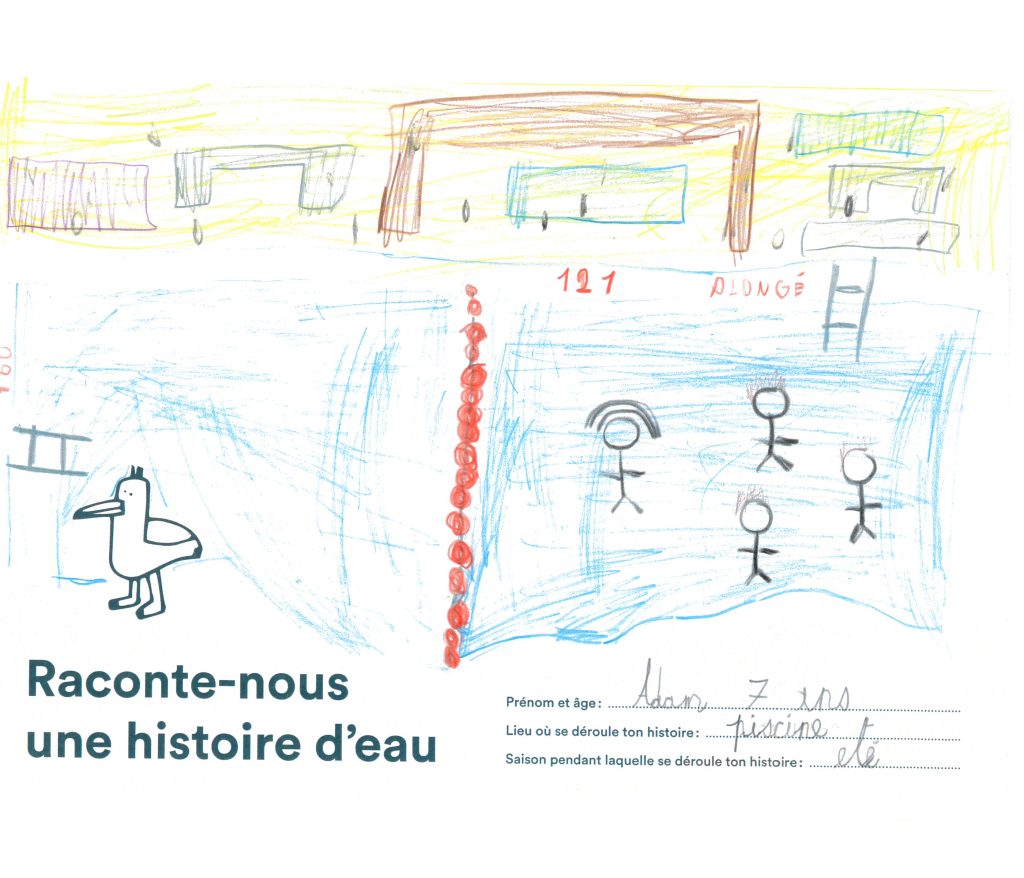 121 PLONGÉ
160
Raconte-nous
une histoire d'eau
Prénom et âge : Adam 7 ans
Lieu où se déroule ton histoire : piscine
Saison pendant laquelle se déroule ton histoire : eté